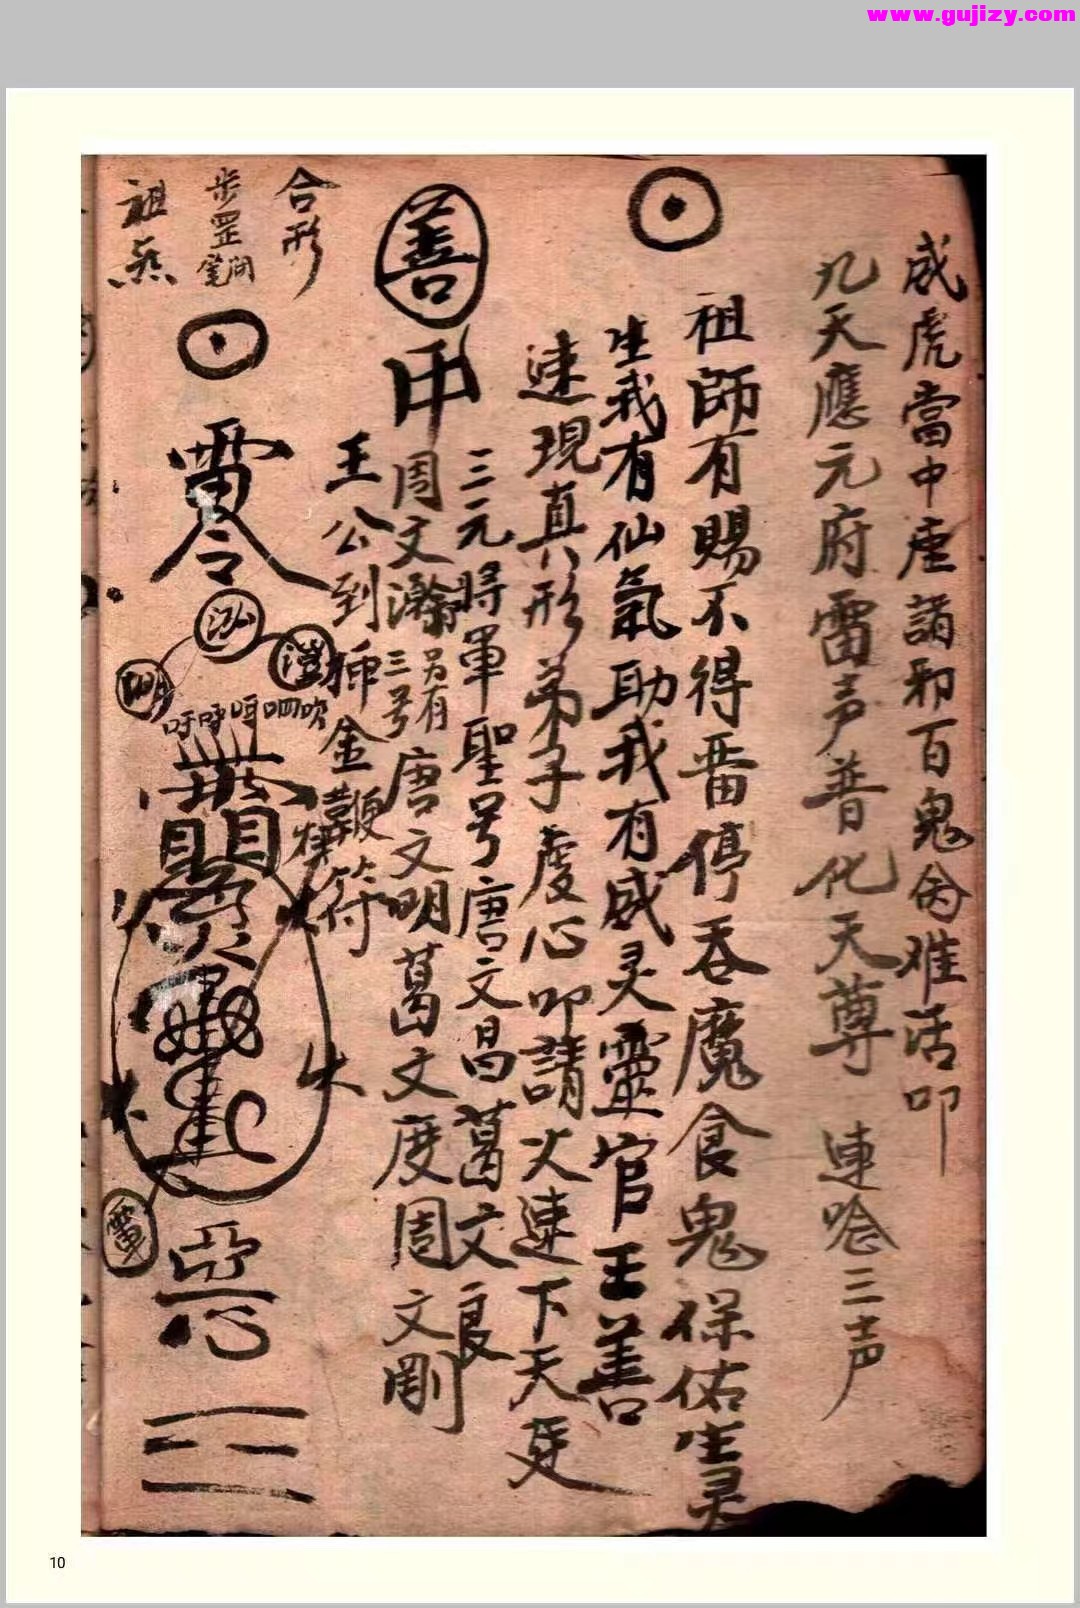 www.gujizy.com
成虎當中座請邪百鬼灾难活叩
九天應元府雷声普化天尊 連唸三声
祖師有賜不得畨停吞魔食鬼保佑生灵
生我有仙氣助我有威灵靈官王善
速現真形弟子虔心叩請火速下天廷
三元將軍聖号唐文昌葛文良
善
周文瀚 另有三号 唐文明葛文度周文刚
王公到 金鞭符
合形
步罡
祖
雷令
泓
澄
吹
雷
惡
10